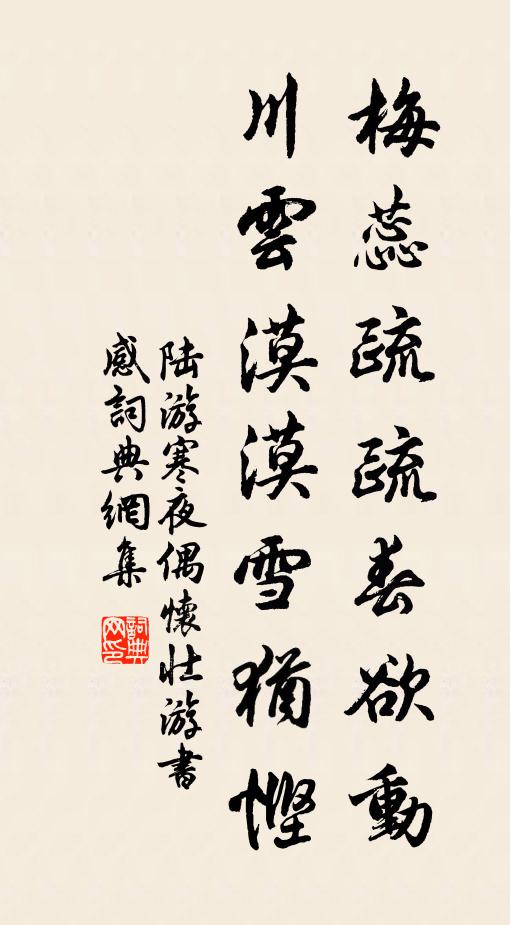 梅蕊疏疏春欲動
川雲漠漠雪猶慳
陸游寒夜偶懷壯游書
感詞典網集
詞典网印